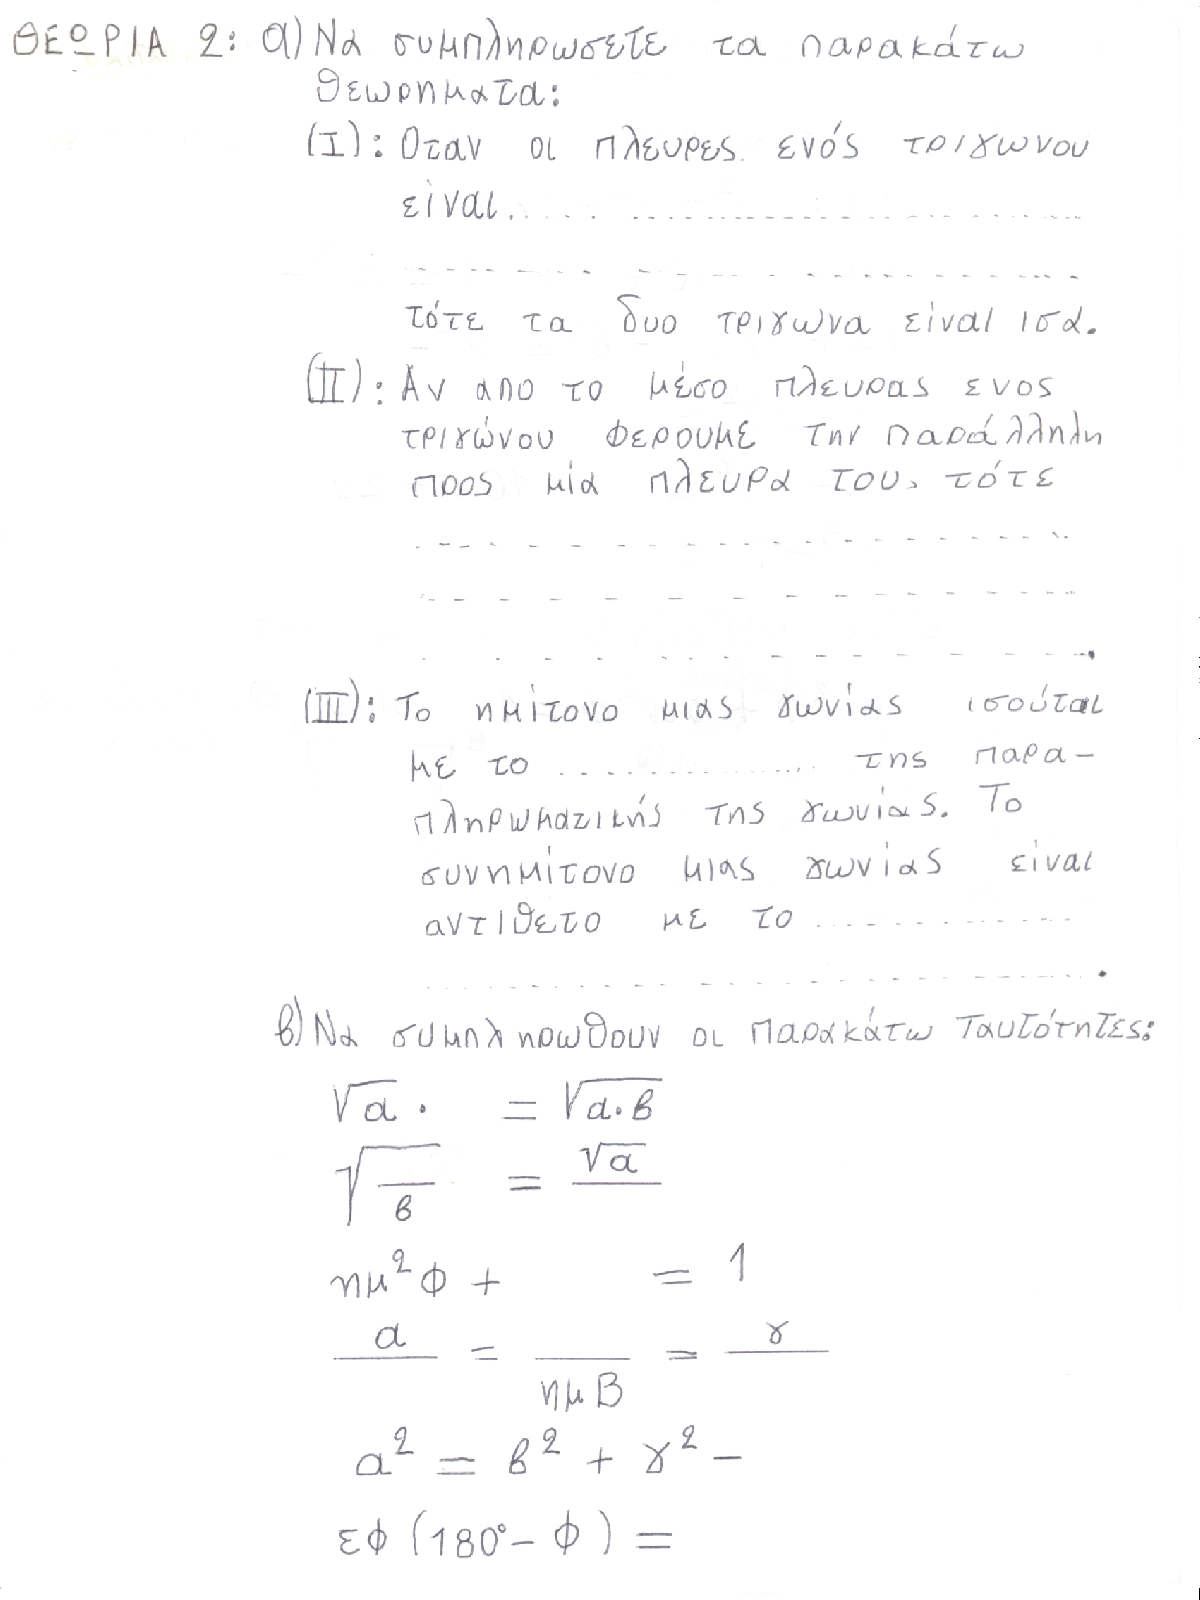 ΘΕΩΡΙΑ 2: α) Να συμπληρωσετε τα παρακάτω
θεωρηματα:
(I): Οταν οι πλευρες ενός τριγωνου
είναι.... ..........................
..........................
τότε τα δυο τριγωνα είναι ισα.
(II): Αν απο το μέσο πλευρας ενος
τριγώνου φερουμε την παράλληλη
προς μία πλευρα του, τότε
..........................
..........................
..........................
(III): Το ημίτονο μιας γωνίας ισούται
με το .................. της παρα-
πληρωματικής της γωνίας. Το
συνημίτονο μιας γωνίας είναι
αντιθετο με το ..................
..........................
β) Να συμπληρωθουν οι παρακάτω ταυτότητες:
√α · = √α·β
√ /β = √α/
ημ²φ + = 1
α/ = /ημΒ = γ/
α² = β² + γ² -
εφ (180° - φ) =